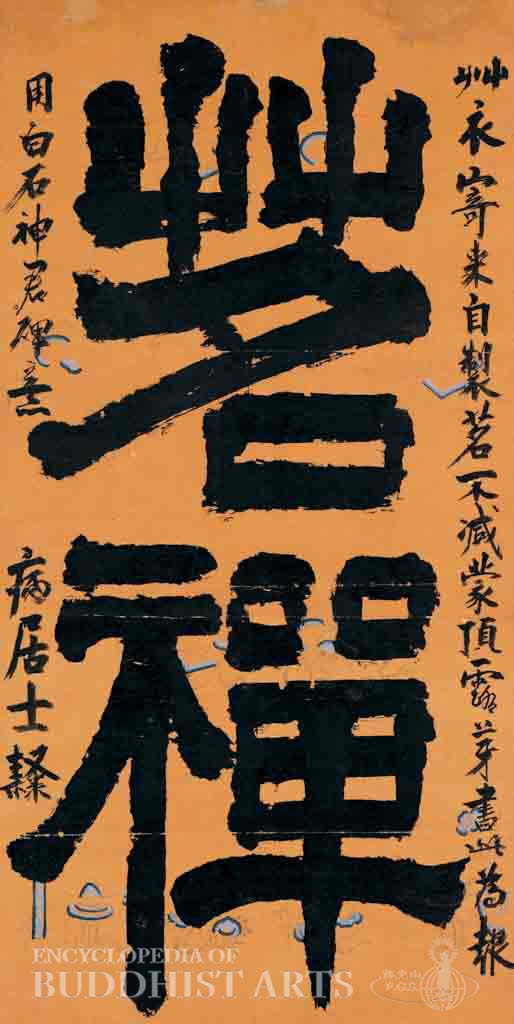 艸衣寄來自製茗不減蒙頂露芽書此為報
茗禪
用白石神君碑意
病居士隸
ENCYCLOPEDIA OF
BUDDHIST ARTS
佛光山
F.G.S.